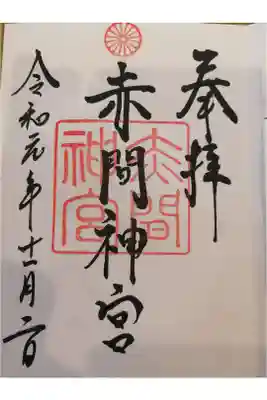 奉拝
赤間神宮
令和元年十一月二日
赤間
神宮